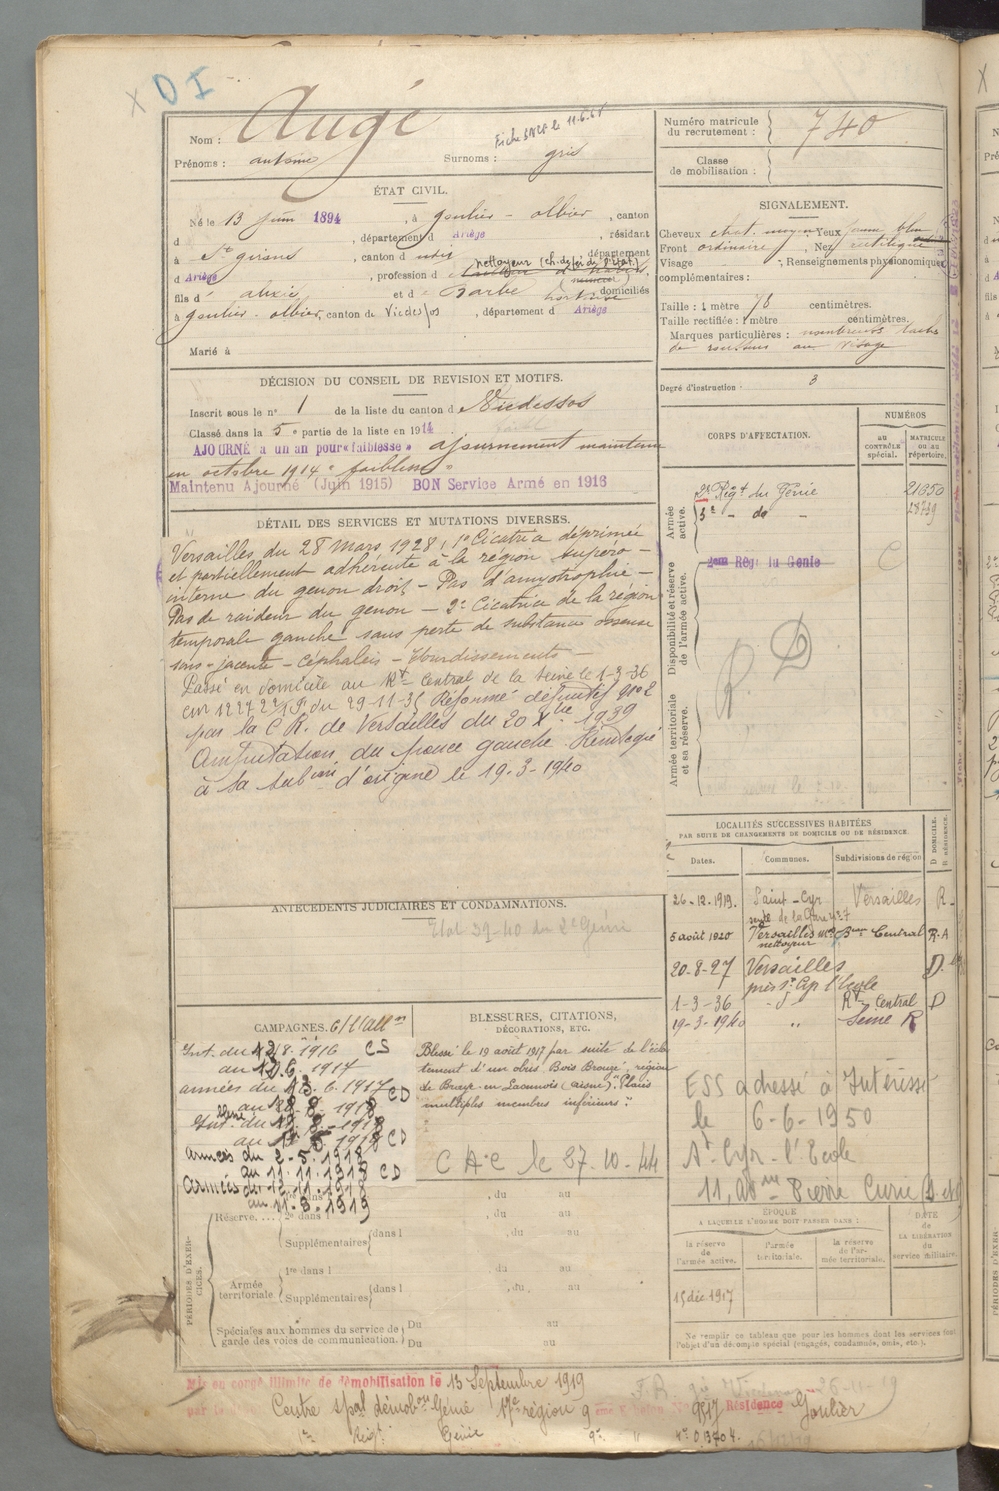 X D I
Nom : Augé
Fiche SNCF le 11.6.51
Prénoms : antoine Surnoms : gris
ÉTAT CIVIL.
Né le 13 juin 1894, à goulier - olbier, canton
d , département d Ariège , résidant
à St girons , canton d udis , département
d Ariège , profession d nettoyeur (ch. de fer de l'État)
fils d' alexis et d Barbe domiciliés
à goulier - olbier, canton de Vicdessos, département d Ariège
Marié à
DÉCISION DU CONSEIL DE REVISION ET MOTIFS.
Inscrit sous le n° 1 de la liste du canton d Vicdessos
Classé dans la 5e partie de la liste en 1914
AJOURNÉ à un an pour « faiblesse » ajournement maintenu
en octobre 1914 " faiblesse "
Maintenu Ajourné (Juin 1915) BON Service Armé en 1916
DÉTAIL DES SERVICES ET MUTATIONS DIVERSES.
Versailles du 28 Mars 1928 ; 1° Cicatrice déprimée
et partiellement adhérente à la région supéro-
interne du genou droit - Pas d'amyotrophie -
Pas de raideur du genou - 2° Cicatrice de la région
temporale gauche sans perte de substance osseuse
sous-jacente - Céphalées - Etourdissements -
Passé en domicile au Rt Central de la Seine le 1-3-36
du 29-11-35 Réformé définitif n° 2
par la C.R. de Versailles du 20 Xbre 1939
Amputation du pouce gauche. Remtogué
à sa subon d'origine le 19-3-1940
ANTÉCÉDENTS JUDICIAIRES ET CONDAMNATIONS.
Etat 39-40 du 2e Génie
CAMPAGNES. C/ l'allem
Int. du 12/8. 1916 CS
au 12.6. 1917
armées du 13. 6. 1917 CD
au 1918
Int. du 1918
au 1918 CD
armées du 2-5.1918
au 11.11.1918 CD
armées du 12.11.1918
au 11.9.1919
BLESSURES, CITATIONS,
DÉCORATIONS, ETC.
Blessé le 19 août 1917 par suite de l'écla-
tement d'un obus Bois Brouzé, région
de Braye-en-Laonnois (aisne). "Plaies
multiples membres inférieurs".
C A C le 27-10-44
PÉRIODES D'EXERCICES.
Réserve. ... 1re dans l , du au
2e dans l , du au
Supplémentaires dans l , du au
Armée territoriale 1re dans l , du au
Supplémentaires dans l , du au
Spéciales aux hommes du service de garde des voies de communication. Du au
Du au
Numéro matricule du recrutement : 740
Classe de mobilisation :
SIGNALEMENT.
Cheveux chat. moyen Yeux jaune bleu
Front ordinaire , Nez rectiligne
Visage ; Renseignements physionomiques
complémentaires :
Taille : 1 mètre 78 centimètres.
Taille rectifiée : 1 mètre centimètres.
Marques particulières : nombreuses taches
de rousseur au visage
Degré d'instruction : 3
CORPS D'AFFECTATION.
NUMÉROS
au CONTRÔLE spécial.
MATRICULE ou au répertoire.
Armée active.
2e Régt du Génie 21650
5e - do - 28739
Disponibilité et réserve de l'armée active.
2ème Régt du Génie C
R. D
Armée territoriale et sa réserve.
LOCALITÉS SUCCESSIVES HABITÉES
PAR SUITE DE CHANGEMENTS DE DOMICILE OU DE RÉSIDENCE.
Dates. Communes. Subdivisions de région D DOMICILE. R RÉSIDENCE.
26-12-1919. Saint-Cyr Versailles R.
route de la Gare n° 7
5 août 1920 Versailles Bau Central R.A
nettoyeur
20-8-27 Versailles D.
près St Cyr l'Ecole
1-3-36 -d- Rt Central D
19-3-1940 " Seine R
ESS adressé à l'intéressé
le 6-6-1950
St-Cyr-l'Ecole
11, Pierre Curie
ÉPOQUE
A LAQUELLE L'HOMME DOIT PASSER DANS :
la réserve de l'armée active. l'armée territoriale. la réserve de l'armée territoriale.
DATE de LA LIBÉRATION du service militaire.
15 déc. 1917
Ne remplir ce tableau que pour les hommes dont les services font
l'objet d'un décompte spécial (engagés, condamnés, omis, etc.).
Mis en congé illimité de démobilisation le 13 Septembre 1919
par le Centre spal démobon Génie 17e région 9 ème Echelon N° 9517 Résidence Goulier
1er Régt Génie 9e " n° D.13704.